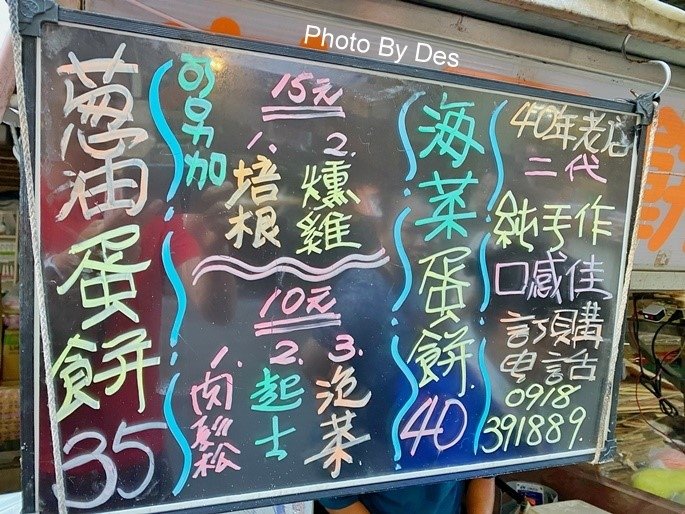 Photo By Des
葱油蛋餅35
可另加
15元
1.培根
2.燻雞
10元
1.肉鬆
2.起士
3.泡菜
海菜蛋餅40
40年老店
二代
純手作
口感佳
訂購
电話
0918
391889.